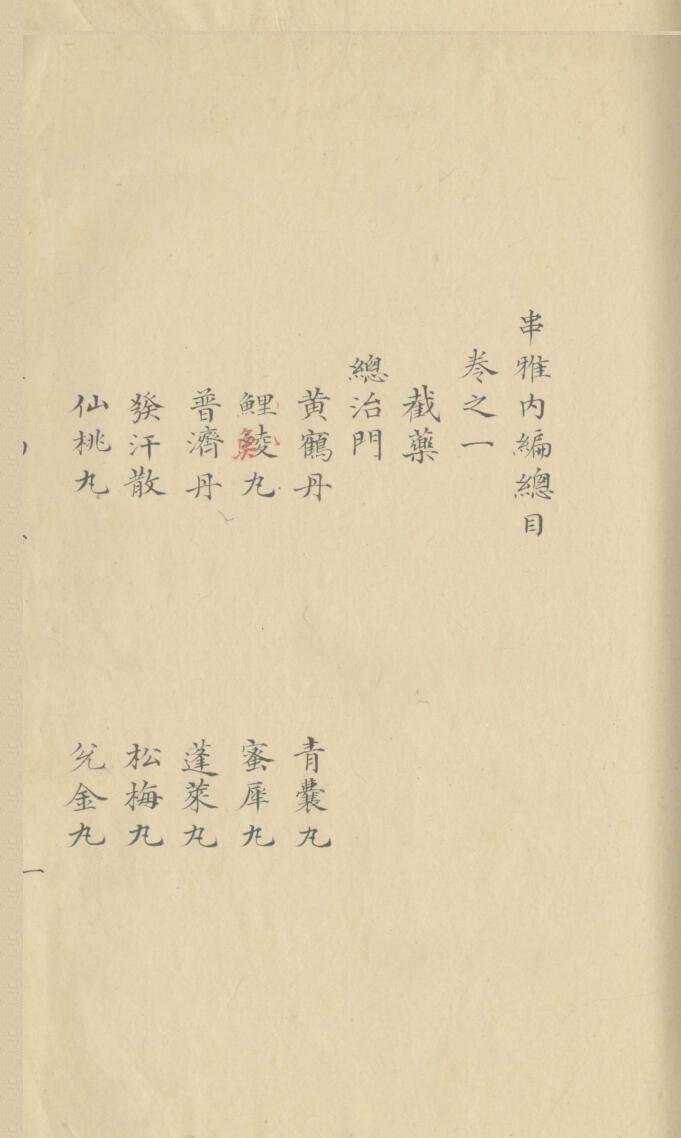 串雅内編總目
卷之一
截藥
總治門
黄鶴丹
青囊丸
鯉鯪丸
蜜犀丸
普濟丹
蓬萊丸
發汗散
松梅丸
仙桃丸
兊金丸
一